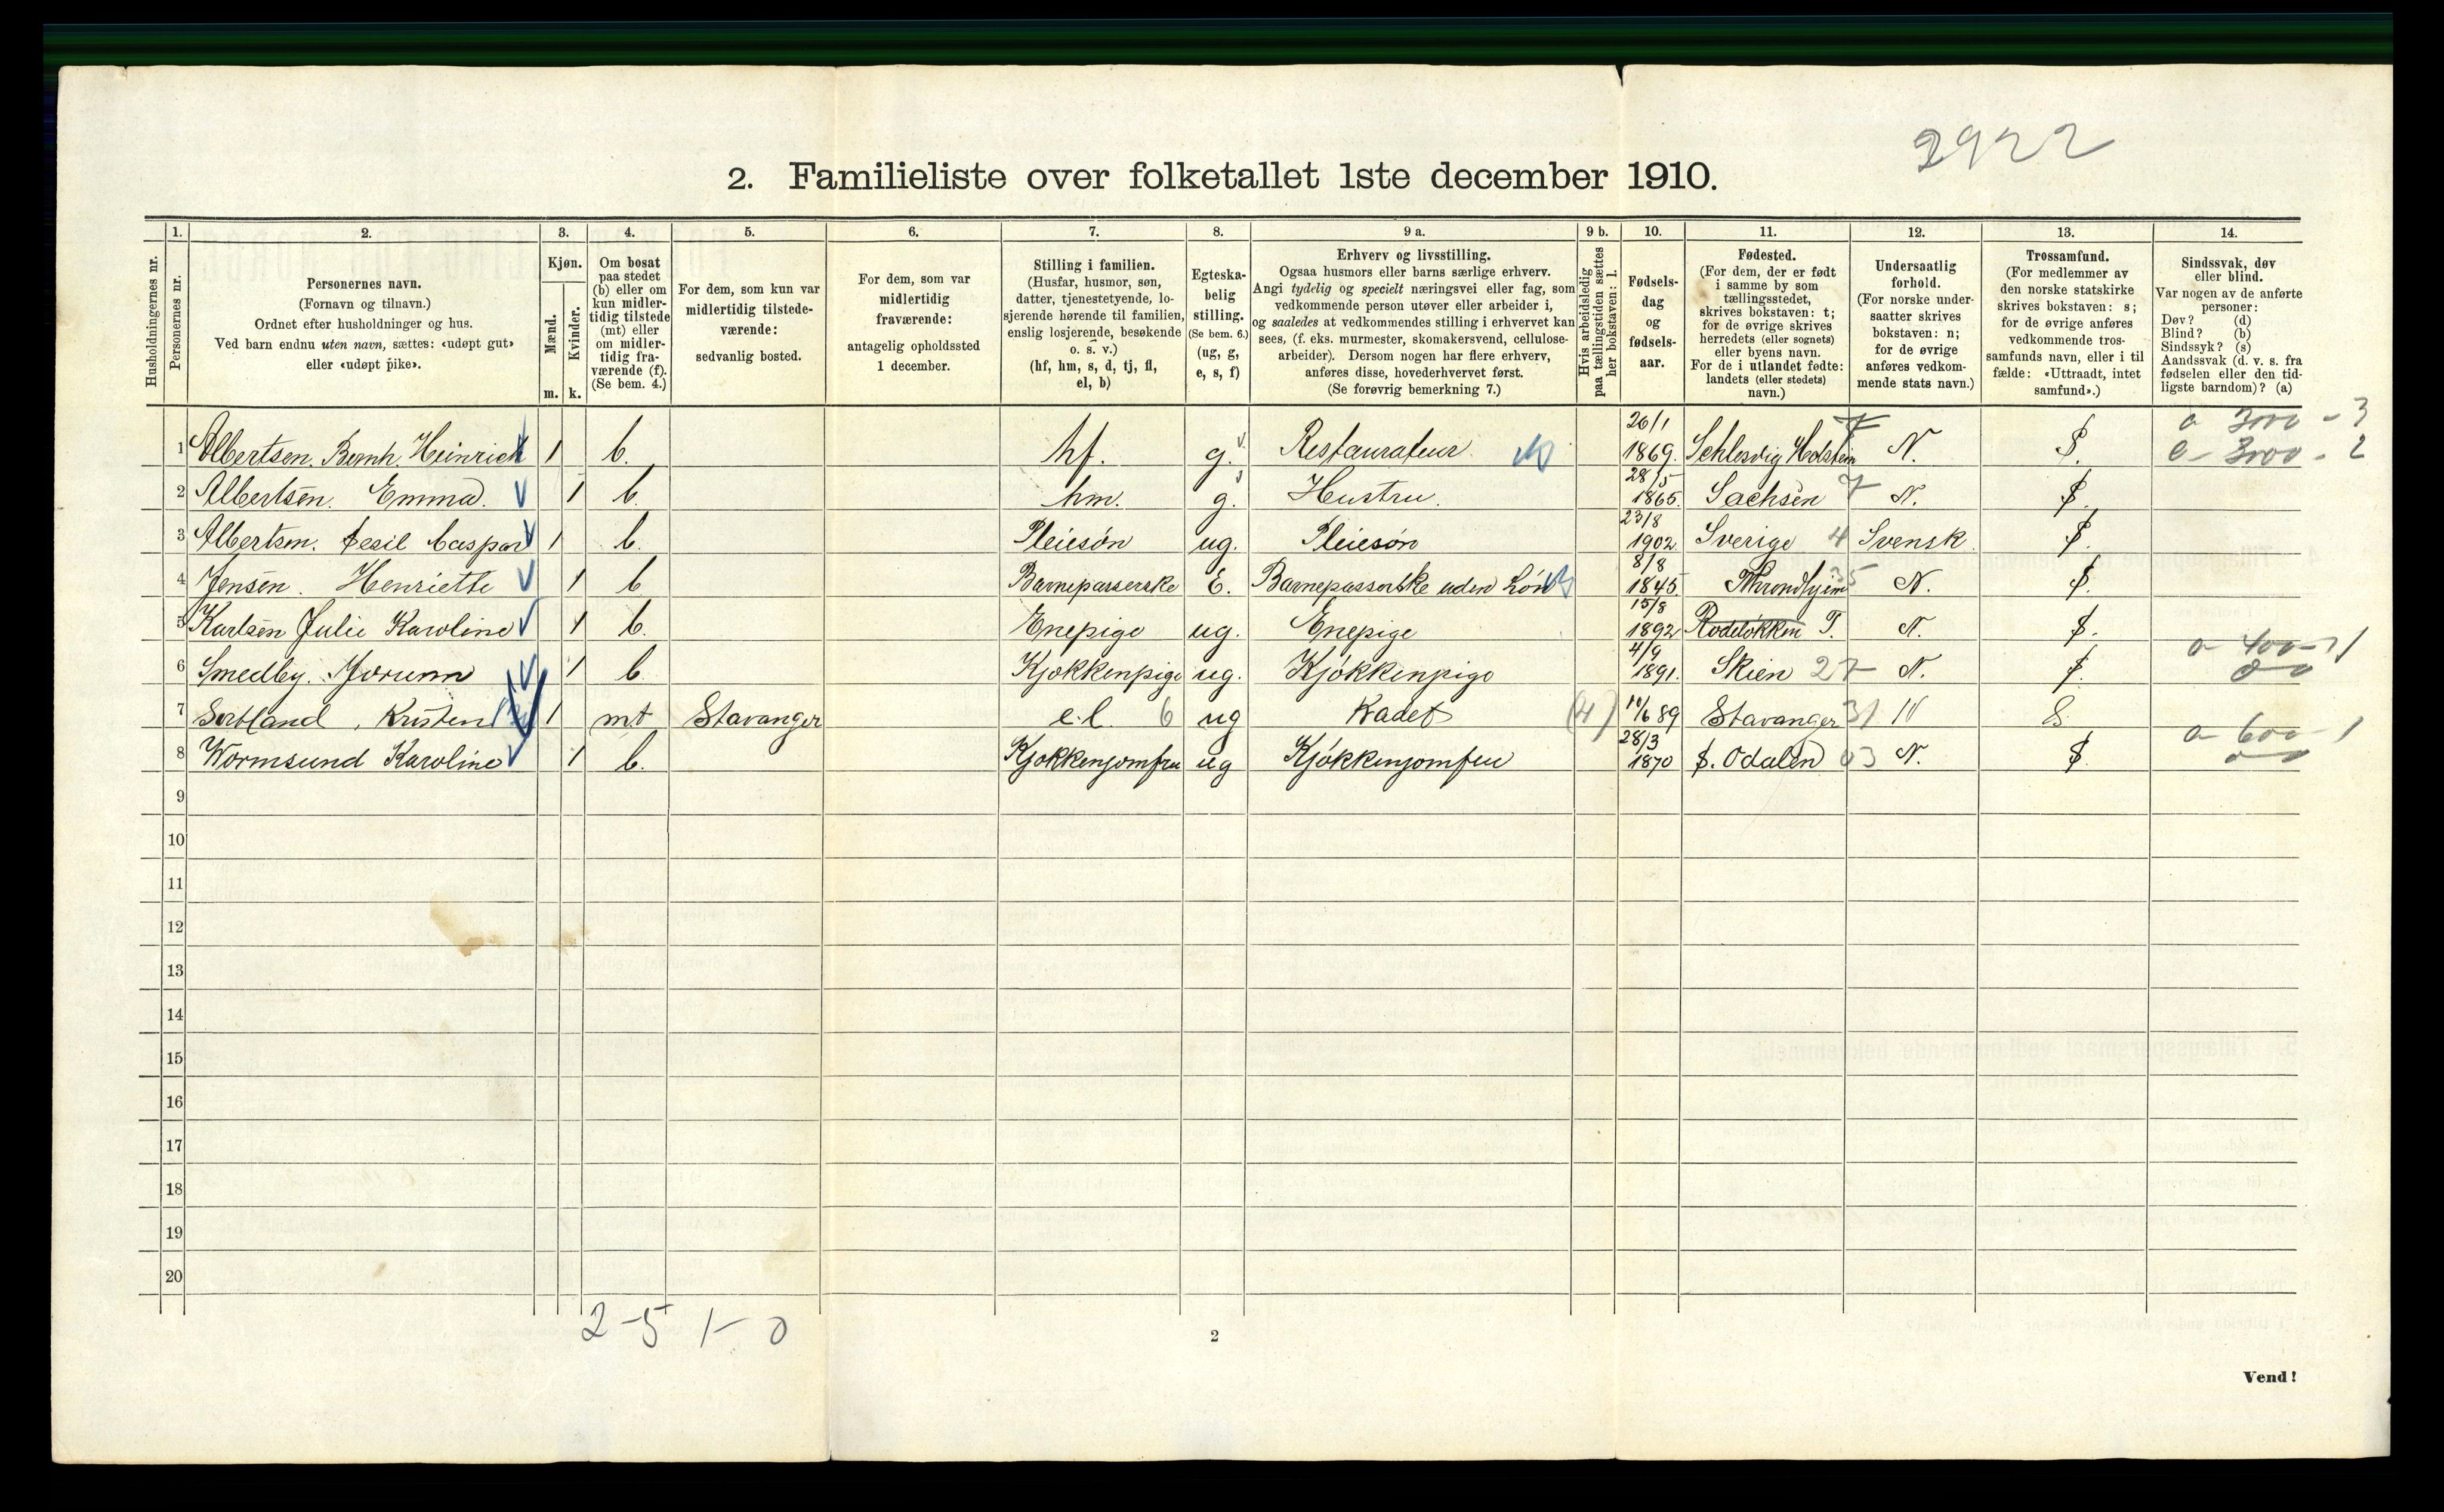 2922
2. Familieliste over folketallet 1ste december 1910.
Husholdningernes nr.
1. Personernes nr.
2. Personernes navn.
(Fornavn og tilnavn.)
Ordnet efter husholdninger og hus.
Ved barn endnu uten navn, sættes: «udøpt gut»
eller «udøpt pike».
3. Kjøn.
Mænd. m.
Kvinder. k.
4. Om bosat
paa stedet
(b) eller om
kun midler-
tidig tilstede
(mt) eller
om midler-
tidig fra-
værende (f).
(Se bem. 4.)
5. For dem, som kun var
midlertidig tilstede-
værende:
sedvanlig bosted.
6. For dem, som var
midlertidig
fraværende:
antagelig opholdssted
1 december.
7. Stilling i familien.
(Husfar, husmor, søn,
datter, tjenestetyende, lo-
sjerende hørende til familien,
enslig losjerende, besøkende
o. s. v.)
(hf, hm, s, d, tj, fl,
el, b)
8. Egteska-
belig
stilling.
(Se bem. 6.)
(ug, g,
e, s, f)
9 a. Erhverv og livsstilling.
Ogsaa husmors eller barns særlige erhverv.
Angi tydelig og specielt næringsvei eller fag, som
vedkommende person utøver eller arbeider i,
og saaledes at vedkommendes stilling i erhvervet kan
sees, (f. eks. murmester, skomakersvend, cellulose-
arbeider). Dersom nogen har flere erhverv,
anføres disse, hovederhvervet først.
(Se forøvrig bemerkning 7.)
9 b. Hvis arbeidsledig
paa tællingstiden sættes
her bokstaven: l.
10. Fødsels-
dag
og
fødsels-
aar.
11. Fødested.
(For dem, der er født
i samme by som
tællingsstedet,
skrives bokstaven: t;
for de øvrige skrives
herredets (eller sognets)
eller byens navn.
For de i utlandet fødte:
landets (eller stedets)
navn.)
12. Undersaatlig
forhold.
(For norske under-
saatter skrives
bokstaven: n;
for de øvrige
anføres vedkom-
mende stats navn.)
13. Trossamfund.
(For medlemmer av
den norske statskirke
skrives bokstaven: s;
for de øvrige anføres
vedkommende tros-
samfunds navn, eller i til
fælde: «Uttraadt, intet
samfund».)
14. Sindssvak, døv
eller blind.
Var nogen av de anførte
personer:
Døv? (d)
Blind? (b)
Sindssyk? (s)
Aandssvak (d. v. s. fra
fødselen eller den tid-
ligste barndom)? (a)
1 Albertsen. Bernh. Heinrich 1 b. hf. g. Restauratør. 26/1 1869. Schlesvig Holstein 7 N. S. a 3000 - 3
e - 3000 - 2
2 Albertsen. Emma. 1 b. hm. g. Hustru. 28/5 1865. Sachsen 7 N. S.
3 Albertsen. Cesil Caspar 1 b. Pleiesøn ug. Pleiesøn 23/8 1902 Sverige 4 Svensk S.
4 Jensen. Henriette 1 b Barnepasserske E. Barnepasserske uden Løn 8/8 1845. Throndhjem 35 N. S.
5 Karlsen Julie Karoline 1 b. Enepige ug. Enepige 15/8 1892 Rodeløkken T. N. S.
6 Smedby. Jorunn 1 b Kjøkkenpige ug. Kjøkkenpige 4/9 1891. Skien 27 N. S. a- 400 - 1
7 Sørbland, Kristen 1 mt Stavanger e.l. 6 ug Kadet (4) 10/6 89 Stavanger 31 N S.
8 Wormsund Karoline 1 b. Kjøkkenjomfru ug Kjøkkenjomfru 28/3 1870 S. Odalen 03 N. S. a- 600 - 1
9
10
11
12
13
14
15
16
17
18
19
20
2-5 1-0
2
Vend!